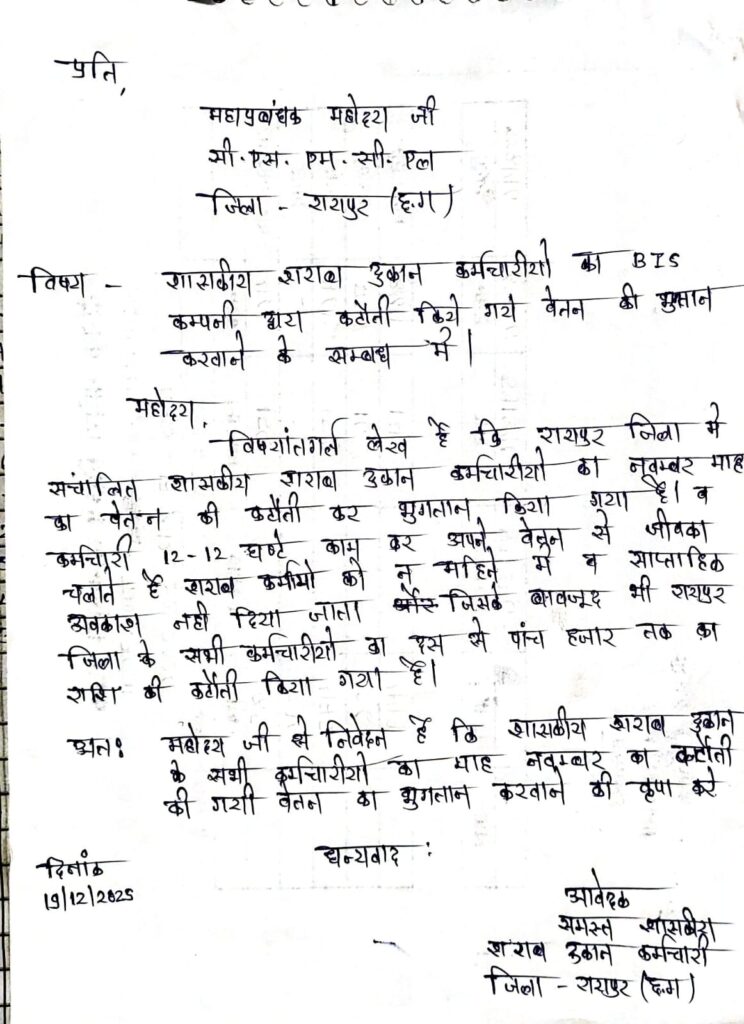 प्रति,
महाप्रबंधक महोदय जी
सी.एस.एम.सी.एल
जिला - रायपुर (छ.ग)
विषय - शासकीय शराब दुकान कर्मचारीयो का BIS
कम्पनी द्वारा कटौती किये गये वेतन की भुगतान
करवाने के सम्बध में |
महोदय,
विषयांतर्गत लेख है कि रायपुर जिला मे
संचालित शासकीय शराब दुकान कर्मचारीयो का नवम्बर माह
का वेतन की कटौती कर भुगतान किया गया है। व
कर्मचारी 12-12 घण्टे काम कर अपने वेतन से जीवका
चलाते है शराब कर्मीयो को न महिने मे व साप्ताहिक
अवकाश नही दिया जाता जिसके बावजूद भी रायपुर
जिला के सभी कर्मचारीयो का दस से पांच हजार तक का
राशि की कटौती किया गया है।
अतः महोदय जी से निवेदन है कि शासकीय शराब दुकान
के सभी कर्मचारीयो का माह नवम्बर का कटौती
की गयी वेतन का भुगतान करवाने की कृपा करे
धन्यवाद :
दिनांक
19/12/2025
आवेदक
समस्त शासकीय
शराब दुकान कर्मचारी
जिला - रायपुर (छ.ग)